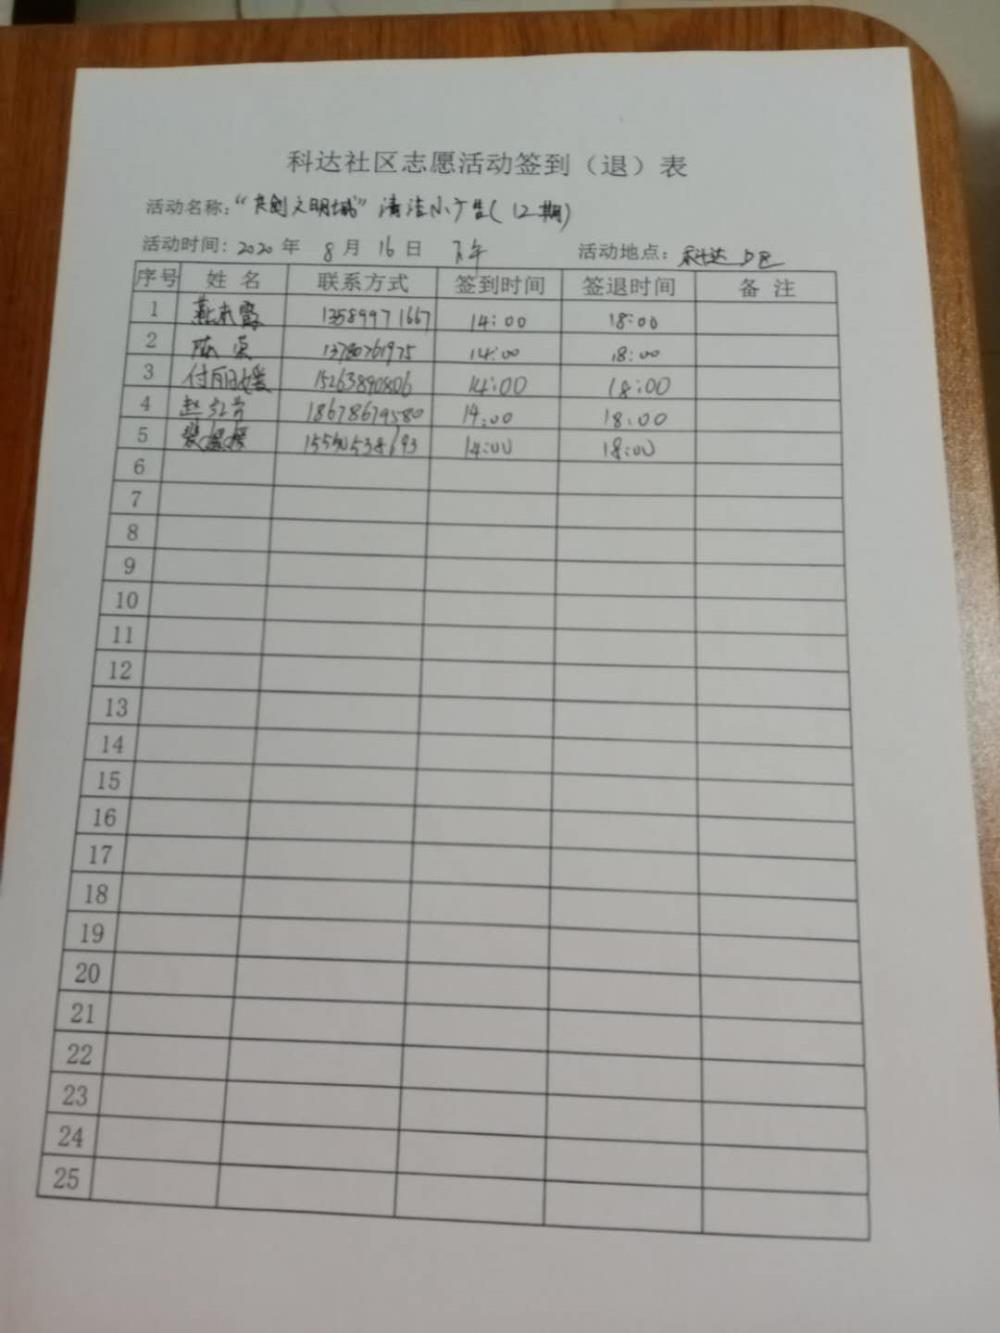 科达社区志愿活动签到（退）表
活动名称：“共创文明城”清洁小广告（12期）
活动时间：2020年 8月 16日 下午 活动地点：科达小区
序号 姓名 联系方式 签到时间 签退时间 备注
1 13589971667 14:00 18:00
2 陈荣 13780761975 14:00 18:00
3 付丽媛 15263890806 14:00 18:00
4 赵红芳 18678679580 14:00 18:00
5 14:00 18:00
6
7
8
9
10
11
12
13
14
15
16
17
18
19
20
21
22
23
24
25